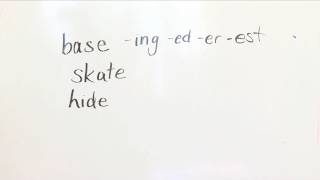 base -ing -ed -er -est
skate
hide